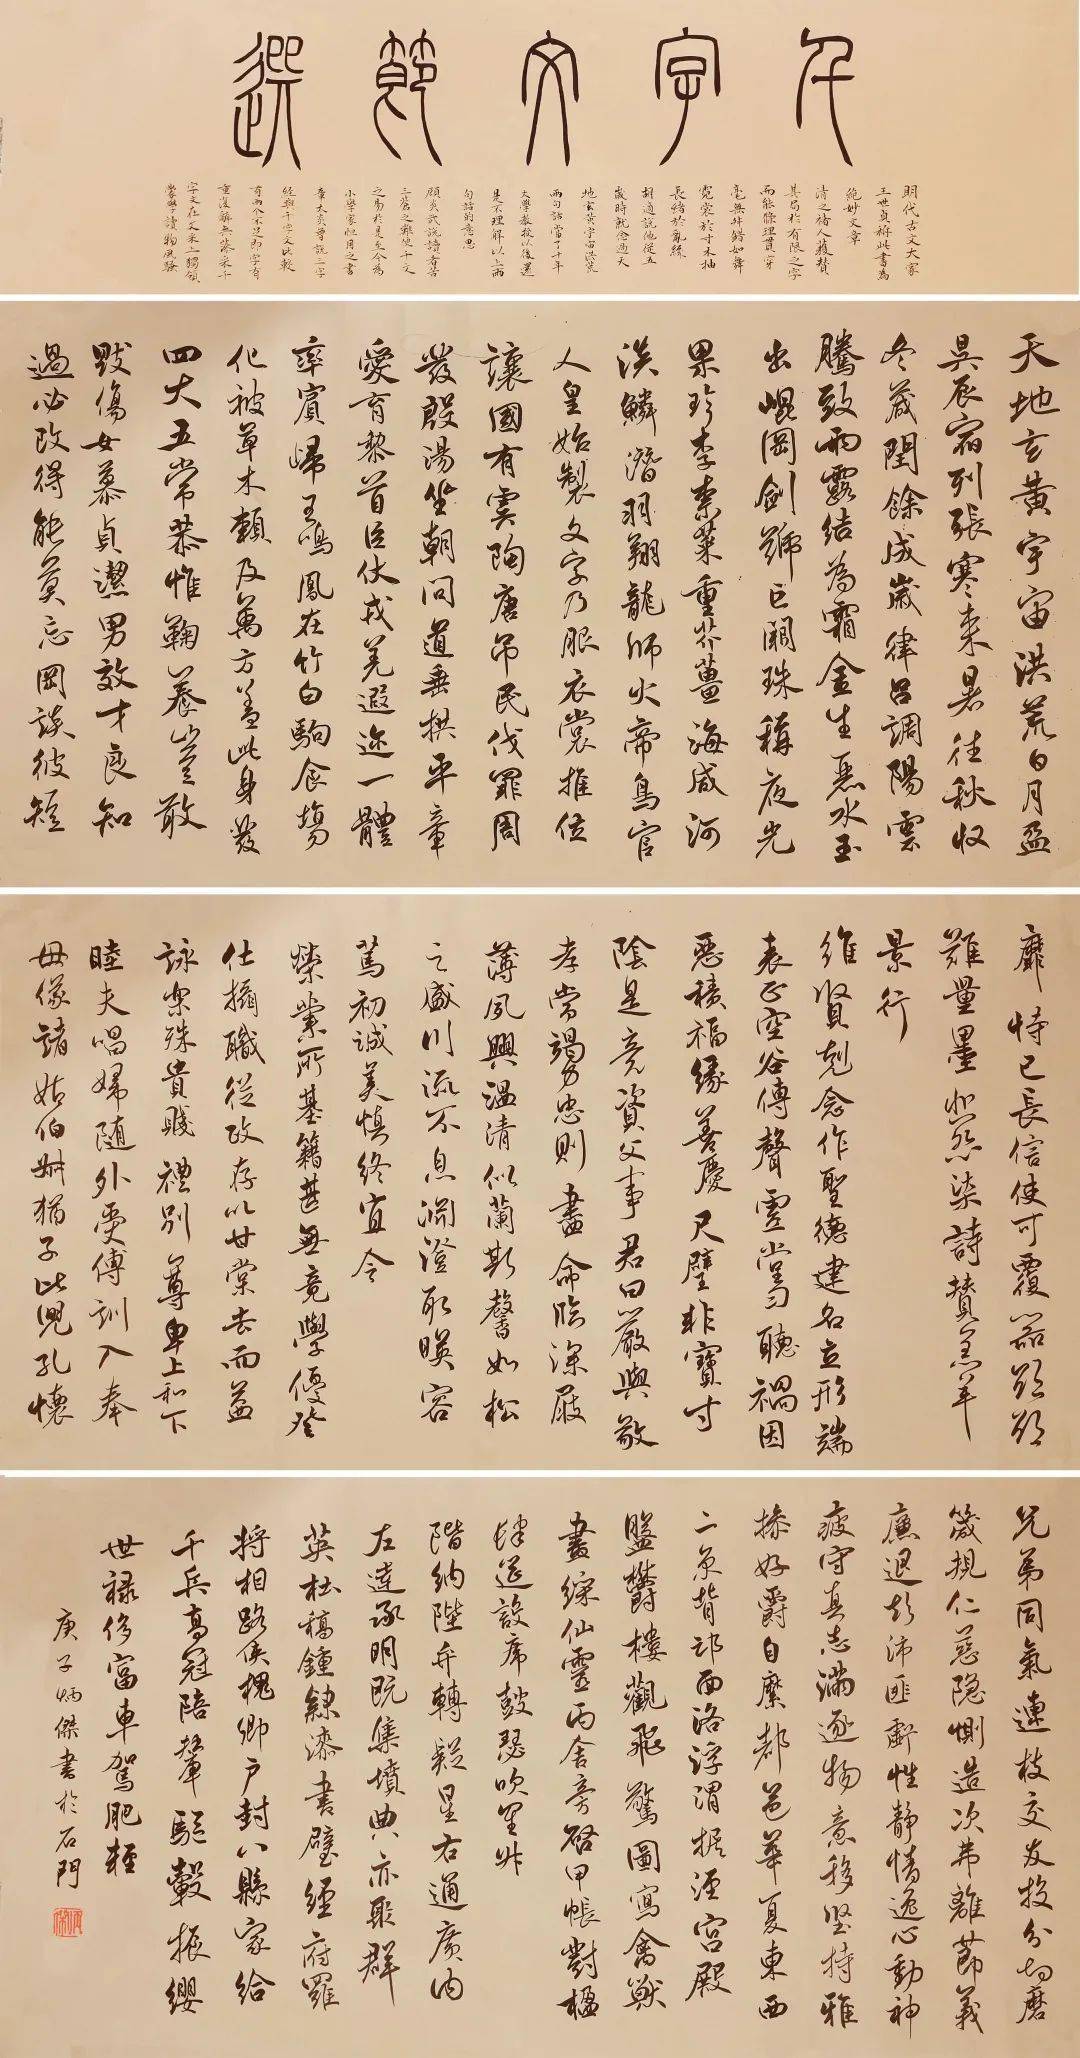 千字文節選
明代古文大家
王世貞稱此書為
絕妙文章
清之褚人獲贊
其局於有限之字
而能條理貫穿
毫無舛錯如舞
霓裳於寸木抽
長緒於亂絲
胡適說他從五
歲時就念過天
地玄黃宇宙洪荒
兩句話當了十年
大學教授以後還
是不理解以上兩
句話的意思
顧炎武說讀者苦
三蒼之難便千文
之易於是至今為
小學家恒用之書
章太炎曾說三字
經與千字文比較
有兩個不足即字有
重複辭無藻采千
字文在文采上獨領
蒙學讀物風騷
天地玄黃宇宙洪荒日月盈
昃辰宿列張寒來暑往秋收
冬藏閏餘成歲律呂調陽雲
騰致雨露結為霜金生麗水玉
出崐岡劍號巨闕珠稱夜光
果珍李柰菜重芥薑海鹹河
淡鱗潛羽翔龍師火帝鳥官
人皇始製文字乃服衣裳推位
讓國有虞陶唐吊民伐罪周
發殷湯坐朝問道垂拱平章
愛育黎首臣伏戎羌遐迩一體
率賓歸王鳴鳳在竹白駒食場
化被草木賴及萬方蓋此身發
四大五常恭惟鞠養豈敢
毀傷女慕貞潔男效才良知
過必改得能莫忘罔談彼短
靡恃己長信使可覆器欲
難量墨悲絲染詩贊羔羊
景行
維賢克念作聖德建名立形端
表正空谷傳聲虛堂習聽禍因
惡積福緣善慶尺璧非寶寸
陰是競資父事君曰嚴與敬
孝當竭力忠則盡命臨深履
薄夙興溫清似蘭斯馨如松
之盛川流不息淵澄取暎容
篤初誠美慎終宜令
榮業所基籍甚無竟學優登
仕攝職從政存以甘棠去而益
詠樂殊貴賤禮別尊卑上和下
睦夫唱婦隨外受傅訓入奉
母儀諸姑伯叔猶子比兒孔懷
兄弟同氣連枝交友投分切磨
箴規仁慈隱惻造次弗離節義
廉退顛沛匪虧性靜情逸心動神
疲守真志滿逐物意移堅持雅
操好爵自縻都邑華夏東西
二京背邙面洛浮渭據涇宮殿
盤鬱樓觀飛驚圖寫禽獸
畫綵仙靈丙舍旁啟甲帳對楹
肆筵設席鼓瑟吹笙升
階納陛弁轉疑星右通廣內
左達承明既集墳典亦聚群
英杜稿鍾隸漆書壁經府羅
將相路俠槐卿戶封八縣家給
千兵高冠陪輦驅轂振纓
世祿侈富車駕肥輕
庚子炳傑書於石門